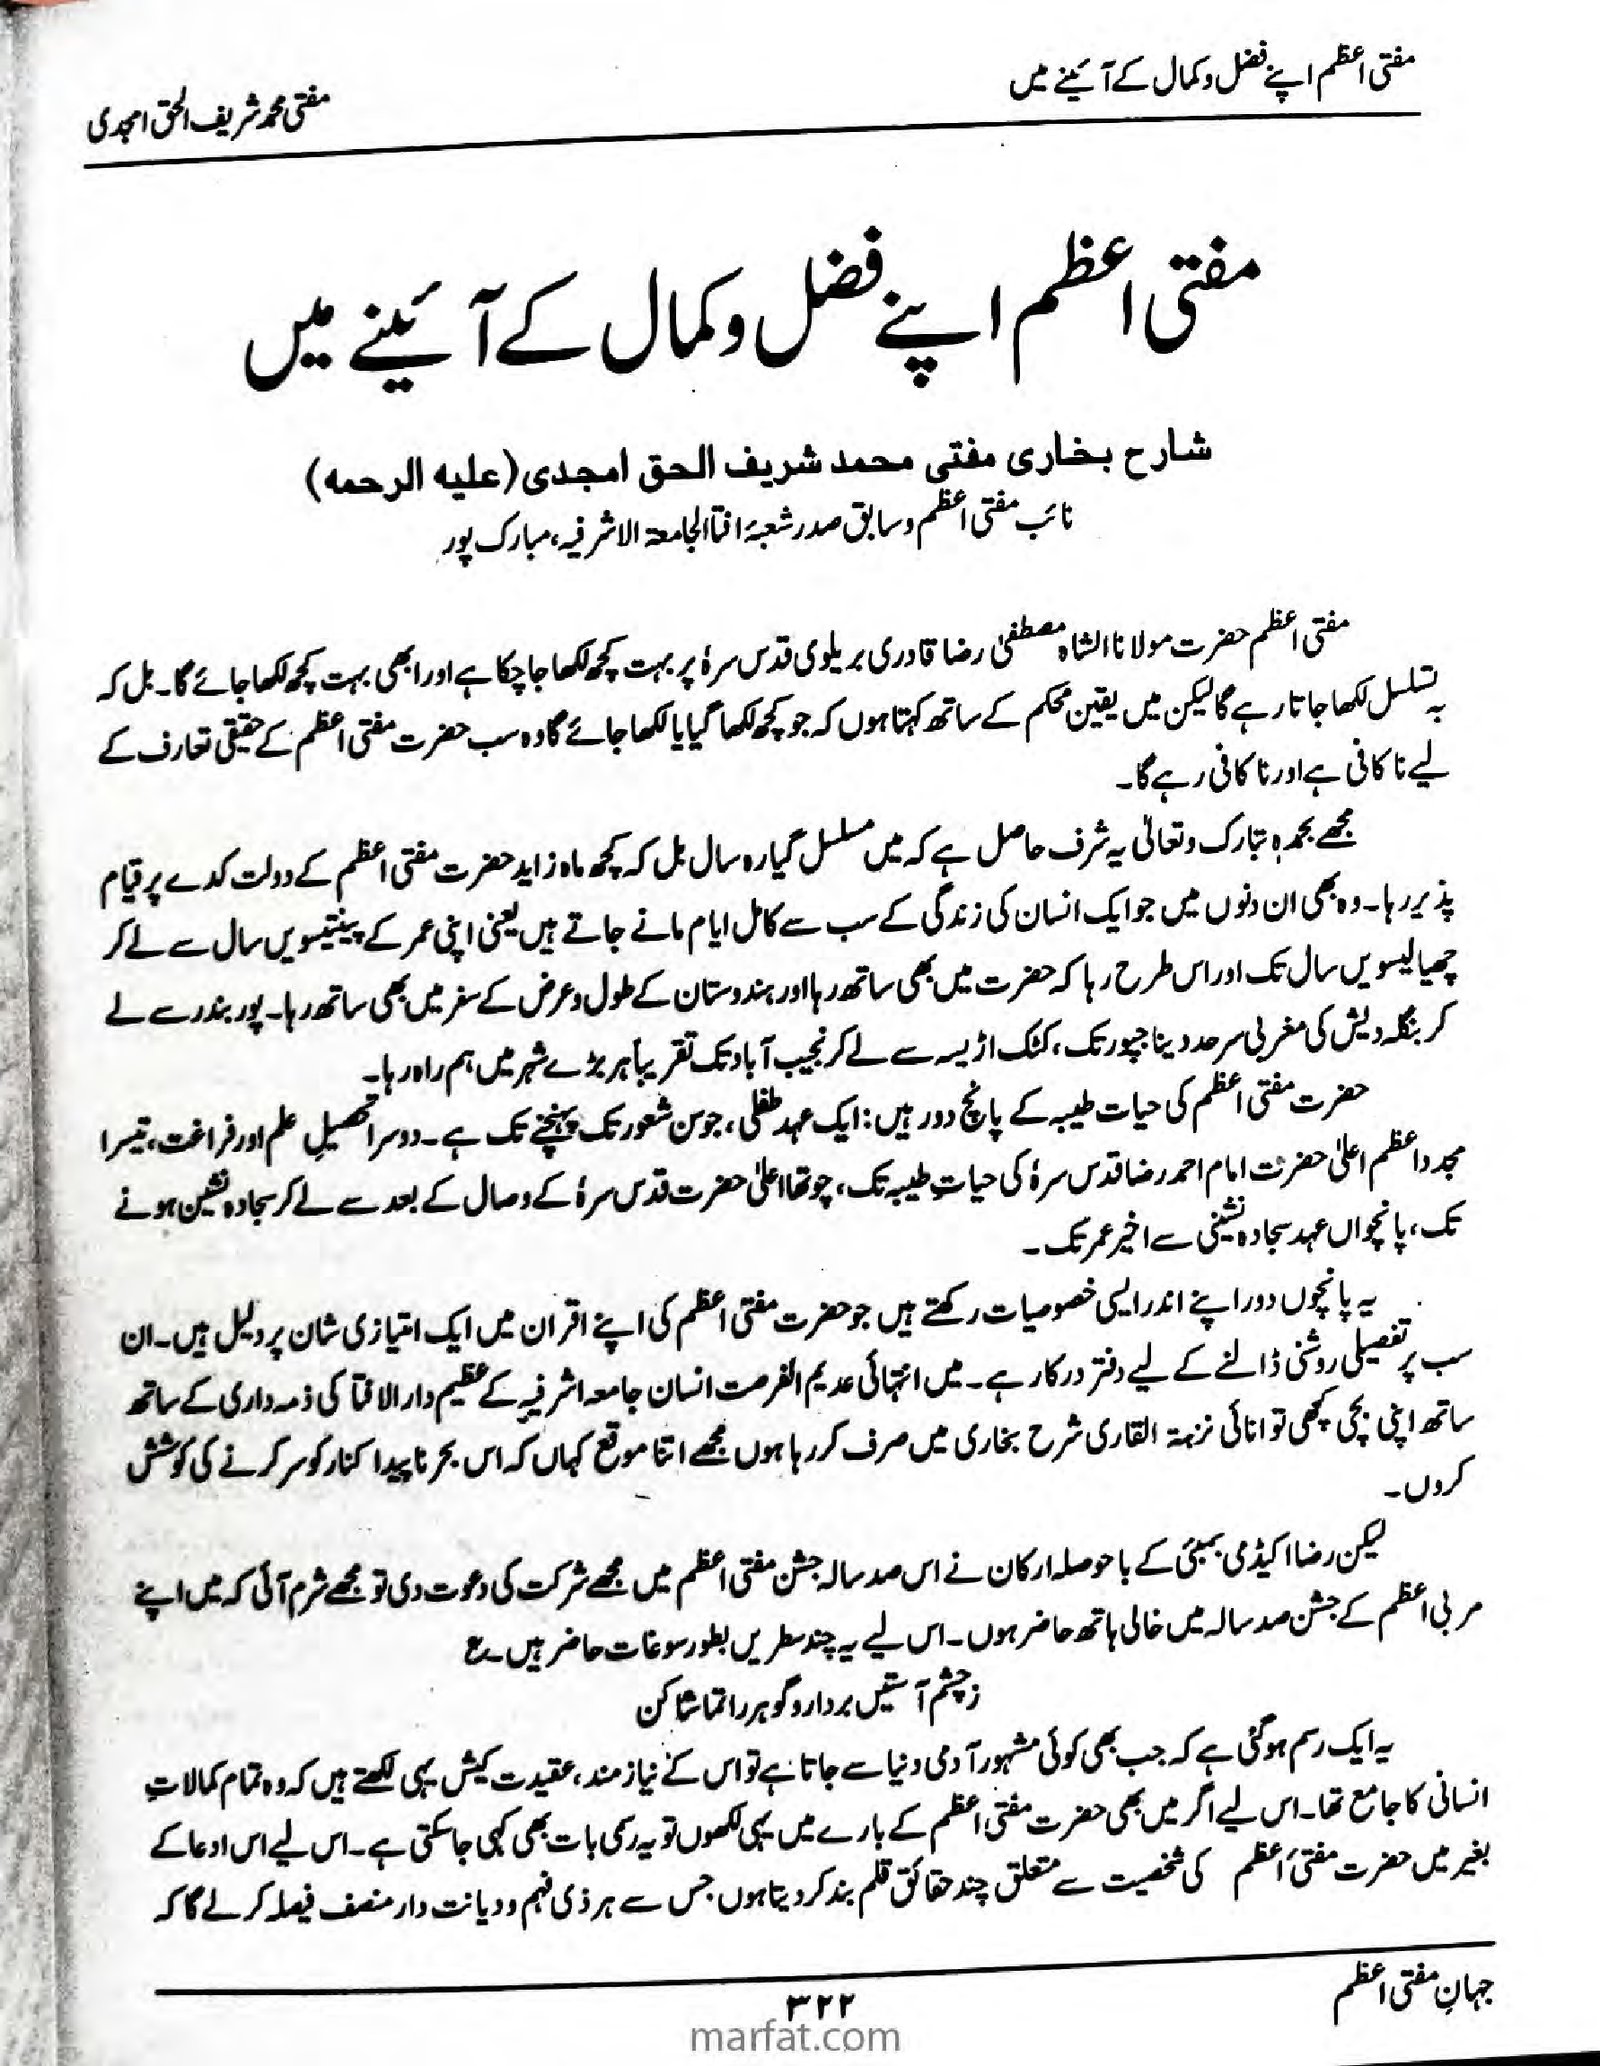 مفتی اعظم اپنے فضل و کمال کے آئینے میں
مفتی محمد شریف الحق امجدی
مفتی اعظم اپنے فضل و کمال کے آئینے میں
شارح بخاری مفتی محمد شریف الحق امجدی (علیہ الرحمہ)
نائب مفتی اعظم و سابق صدر شعبۂ افتا الجامعۃ الاشرفیہ، مبارک پور
مفتی اعظم حضرت مولانا الشاہ مصطفیٰ رضا قادری بریلوی قدس سرہٗ پر بہت کچھ لکھا جا چکا ہے اور ابھی بہت کچھ لکھا جائے گا۔ بل کہ
بہ تسلسل لکھا جاتا رہے گا لیکن میں یقین محکم کے ساتھ کہتا ہوں کہ جو کچھ لکھا گیا یا لکھا جائے گا وہ سب حضرت مفتی اعظم کے حقیقی تعارف کے
لیے ناکافی ہے اور ناکافی رہے گا۔
مجھے بحمدہٖ تبارک و تعالیٰ یہ شرف حاصل ہے کہ میں مسلسل گیارہ سال بل کہ کچھ ماہ زاید حضرت مفتی اعظم کے دولت کدے پر قیام
پذیر رہا۔ وہ بھی ان دنوں میں جو ایک انسان کی زندگی کے سب سے کامل ایام مانے جاتے ہیں یعنی اپنی عمر کے پینتیسویں سال سے لے کر
چھیالیسویں سال تک اور اس طرح رہا کہ حضرت میں بھی ساتھ رہا اور ہندوستان کے طول و عرض کے سفر میں بھی ساتھ رہا۔ پور بندر سے لے
کر بنگلہ دیش کی مغربی سرحد دیناجپور تک، کٹک اڑیسہ سے لے کر نجیب آباد تک تقریباً ہر بڑے شہر میں ہم راہ رہا۔
حضرت مفتی اعظم کی حیات طیبہ کے پانچ دور ہیں: ایک عہد طفلی، جو سن شعور تک پہنچنے تک ہے۔ دوسرا تحصیلِ علم اور فراغت، تیسرا
مجدد اعظم اعلیٰ حضرت امام احمد رضا قدس سرہٗ کی حیاتِ طیبہ تک، چوتھا اعلیٰ حضرت قدس سرہٗ کے وصال کے بعد سے لے کر سجادہ نشین ہونے
تک، پانچواں عہد سجادہ نشینی سے اخیر عمر تک۔
یہ پانچوں دور اپنے اندر ایسی خصوصیات رکھتے ہیں جو حضرت مفتی اعظم کی اپنے اقران میں ایک امتیازی شان پر دلیل ہیں۔ ان
سب پر تفصیلی روشنی ڈالنے کے لیے دفتر درکار ہے۔ میں انتہائی عدیم الفرصت انسان جامعہ اشرفیہ کے عظیم دارالافتا کی ذمہ داری کے ساتھ
ساتھ اپنی بچی کھچی توانائی نزہۃ القاری شرح بخاری میں صرف کر رہا ہوں مجھے اتنا موقع کہاں کہ اس بحر ناپیدا کنار کو سر کرنے کی کوشش
کروں۔
لیکن رضا اکیڈمی بمبئی کے باحوصلہ ارکان نے اس صد سالہ جشن مفتی اعظم میں مجھے شرکت کی دعوت دی تو مجھے شرم آئی کہ میں اپنے
مربی اعظم کے جشن صد سالہ میں خالی ہاتھ حاضر ہوں۔ اس لیے یہ چند سطریں بطور سوغات حاضر ہیں۔ ع
ز چشم آستیں بردار و گوہر را تماشا کن
یہ ایک رسم ہو گئی ہے کہ جب بھی کوئی مشہور آدمی دنیا سے جاتا ہے تو اس کے نیاز مند، عقیدت کیش یہی لکھتے ہیں کہ وہ تمام کمالاتِ
انسانی کا جامع تھا۔ اس لیے اگر میں بھی حضرت مفتی اعظم کے بارے میں یہی لکھوں تو یہ رسمی بات بھی کہی جا سکتی ہے۔ اس لیے اس ادعا کے
بغیر میں حضرت مفتیٔ اعظم کی شخصیت سے متعلق چند حقائق قلم بند کر دیتا ہوں جس سے ہر ذی فہم و دیانت دار منصف فیصلہ کر لے گا کہ
جہانِ مفتی اعظم
۳۲۲
marfat.com